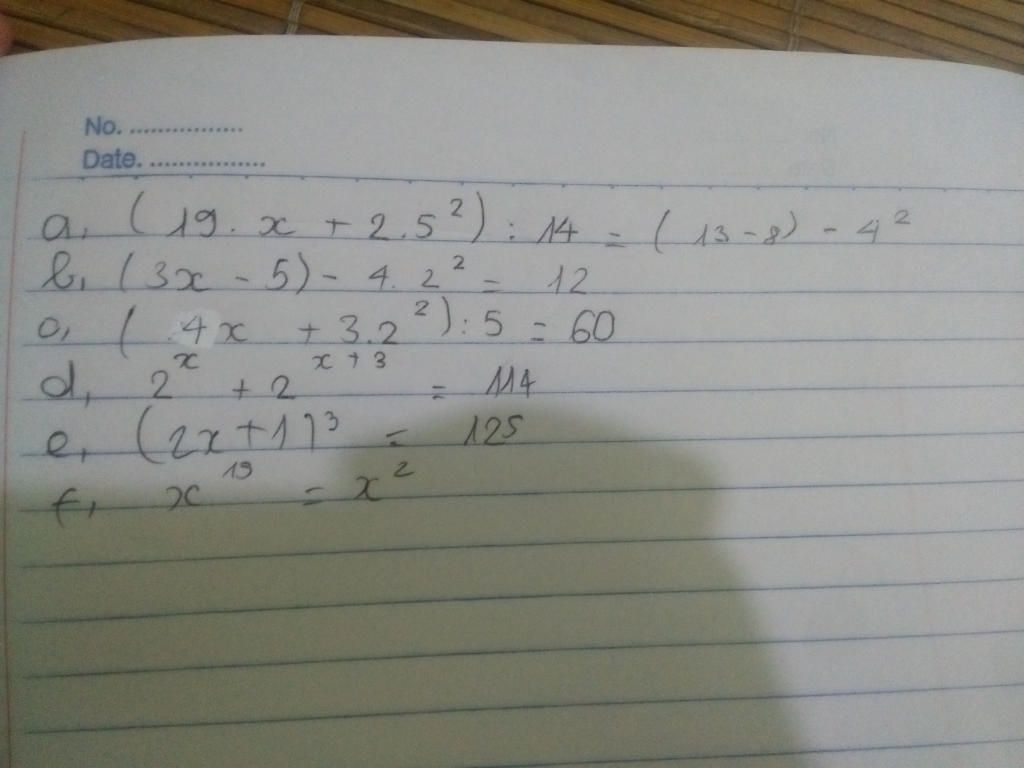 No. ................
Date. ................
a, (19. x + 2.5²) : 14 = (13 - 8) - 4²
b, (3x - 5) - 4. 2² = 12
c, (4x + 3.2²) : 5 = 60
d, 2ˣ + 2ˣ⁺³ = 114
e, (2x + 1)³ = 125
f, x¹⁹ = x²